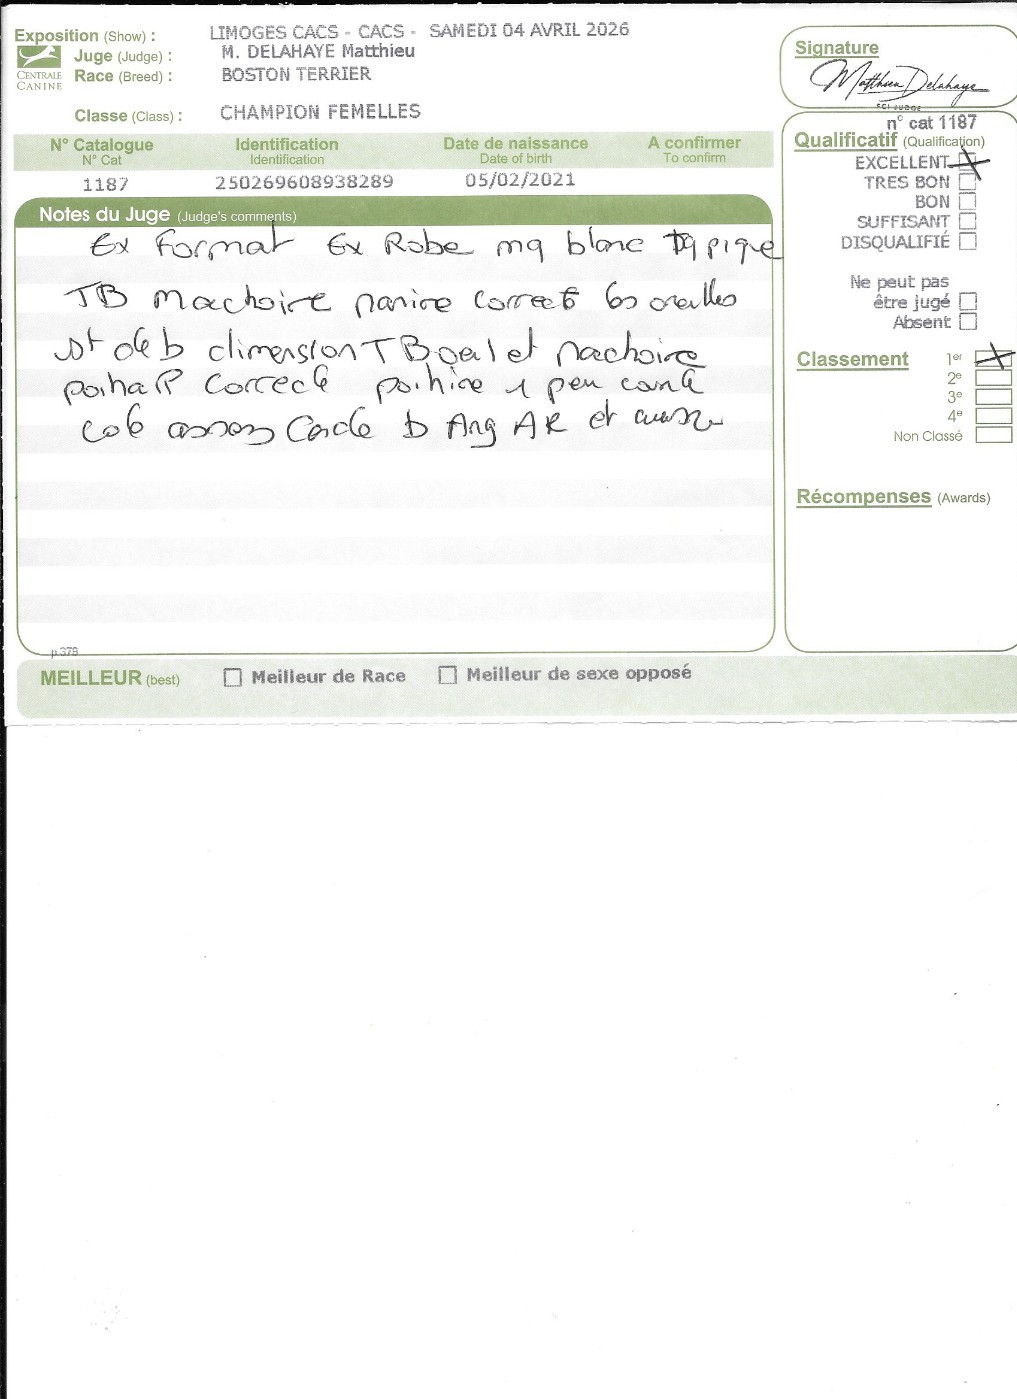 Exposition (Show) : LIMOGES CACS - CACS - SAMEDI 04 AVRIL 2026
Juge (Judge) : M. DELAHAYE Matthieu
CENTRALE CANINE
Race (Breed) : BOSTON TERRIER
Classe (Class) : CHAMPION FEMELLES
Signature
Matthieu Delahaye
FCI JUDGE
n° cat 1187
N° Catalogue Identification Date de naissance A confirmer
N° Cat Identification Date of birth To confirm
1187 250269608938289 05/02/2021
Qualificatif (Qualification)
EXCELLENT
TRES BON
BON
SUFFISANT
DISQUALIFIÉ
Ne peut pas
être jugé
Absent
Classement 1er
2e
3e
4e
Non Classé
Récompenses (Awards)
Notes du Juge (Judge's comments)
Ex Format Ex Robe mq blanc
TB machoire narine correct oreilles
st de b dimension TB oeil et machoire
correcte 1 peu
assez b Ang AR et
p.379
MEILLEUR (best) Meilleur de Race Meilleur de sexe opposé